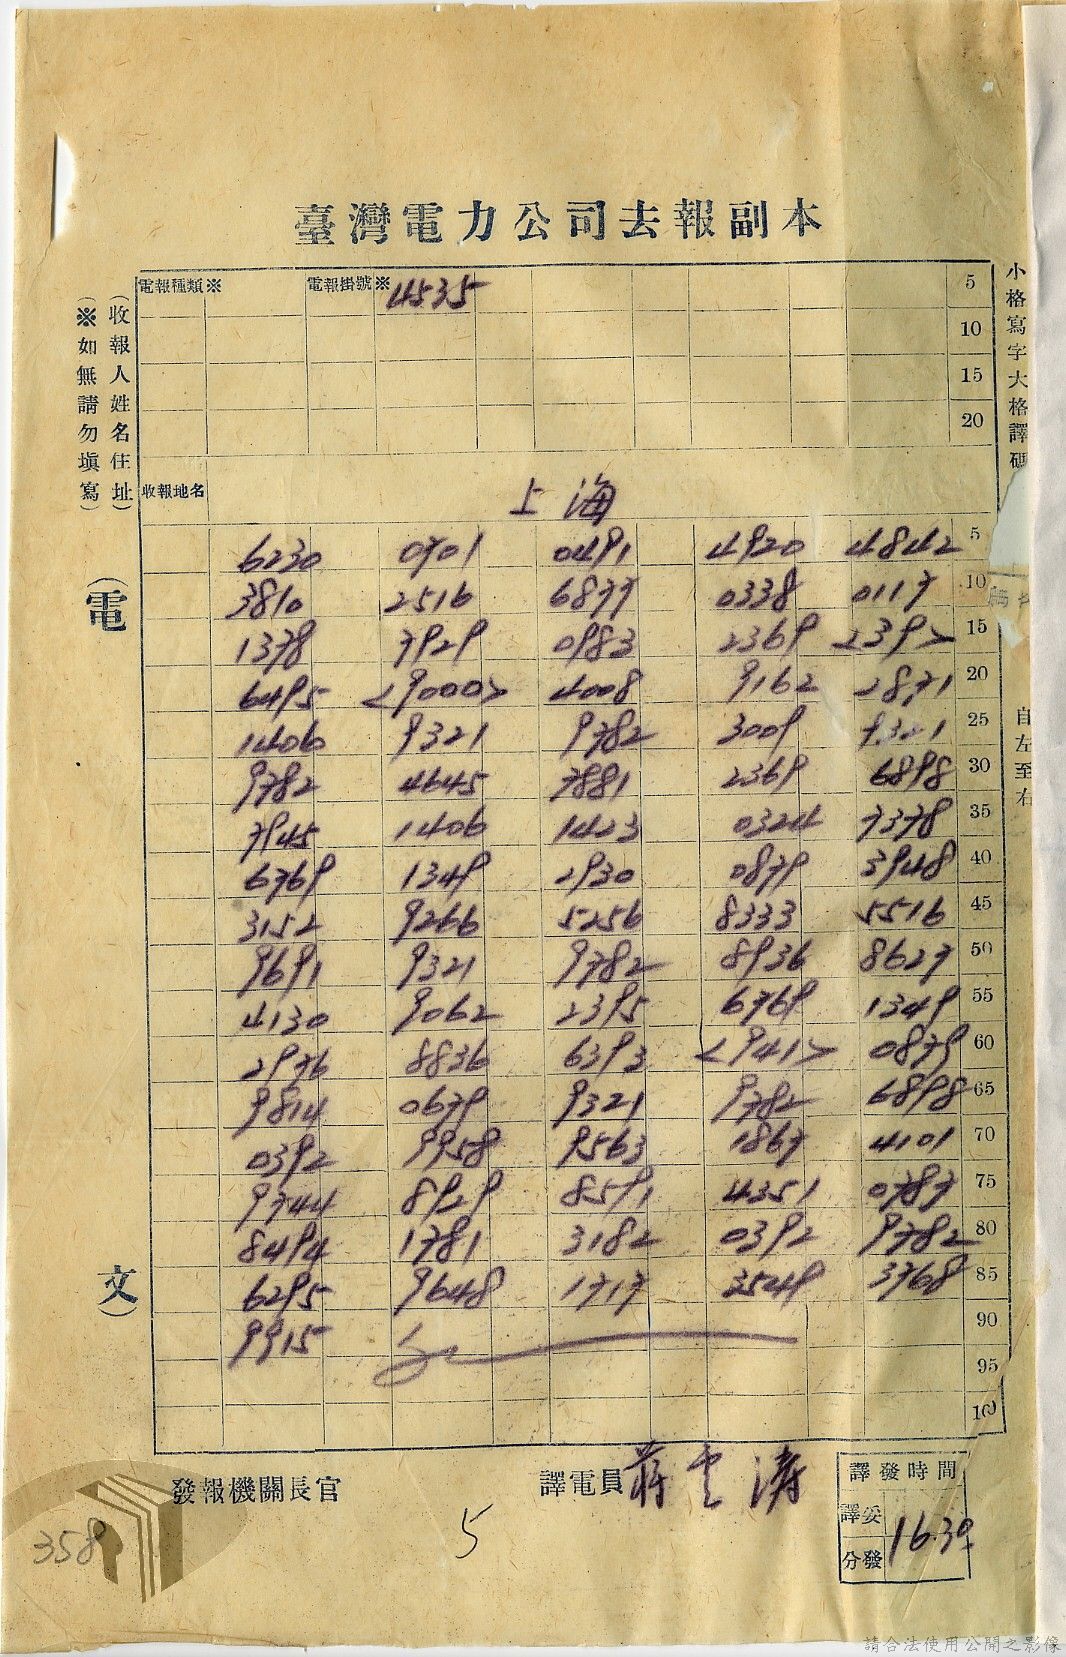 臺灣電力公司去報副本
電報種類※ 電報掛號※ 4535 5
10
15
20
小格寫字大格譯碼
自左至右
(收報人姓名住址)
(※如無請勿填寫)
收報地名 上海
(電文)
6230 0701 0491 4920 4842 5
3810 2516 6877 0338 0117 10
1378 7929 0983 2369 <239> 15
6495 <9000> 4008 9162 2871 20
1406 9321 9782 3009 9321 25
9782 4645 7881 2369 6898 30
7945 1406 1423 0324 7378 35
6769 1349 2930 0879 3948 40
3152 9266 5256 8333 5516 45
9691 9321 9782 8936 8627 50
4130 9062 2395 6769 1349 55
2976 8836 6393 <941> 0879 60
9814 0679 9321 9782 6898 65
0392 9958 9563 1867 4101 70
9744 8929 8591 4351 0787 75
8494 1781 3182 0392 9782 80
6295 9648 1717 3549 3768 85
9915 90
95
100
發報機關長官 譯電員 蔣雲濤
譯發時間
譯妥
分發
16.30
5
358
請合法使用公開之影像